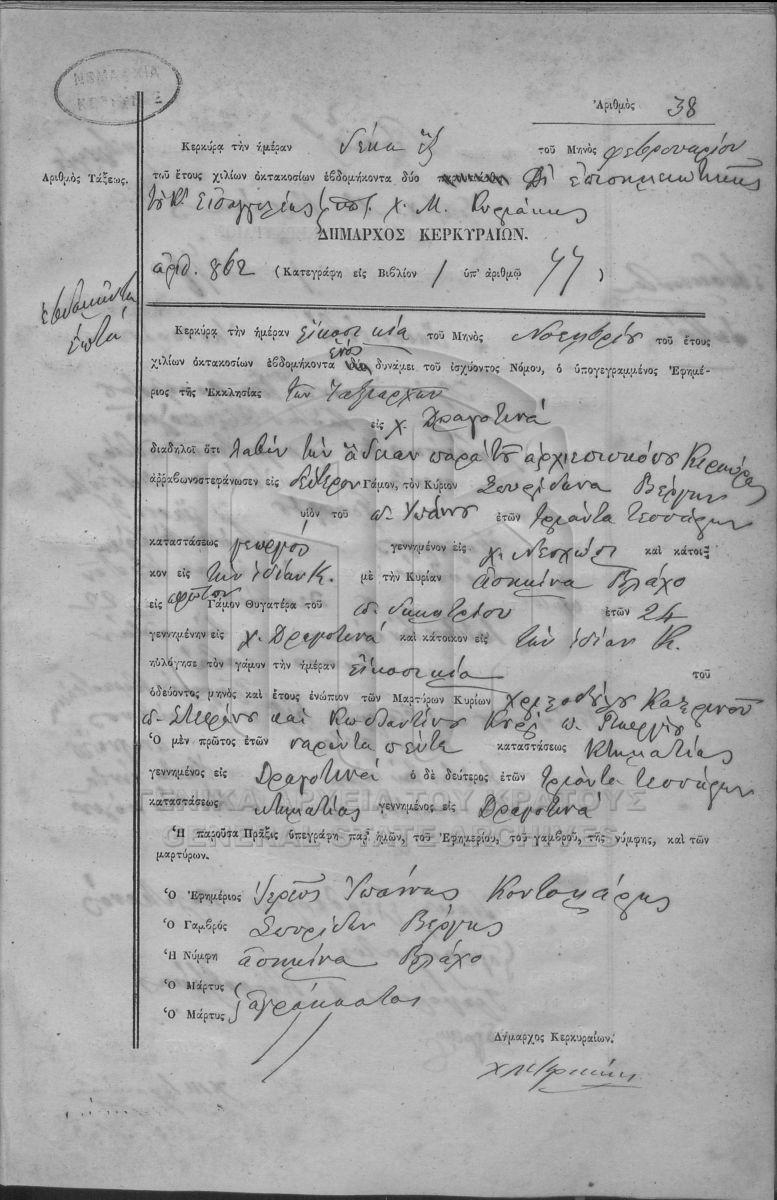 ΝΟΜΑΡΧΙΑ
ΚΕΡΚΥΡΑΣ
Ἀριθμὸς 38
Κερκύρᾳ τὴν ἡμέραν δέκα ἓξ τοῦ Μηνὸς φεβρουαρίου
Ἀριθμὸς Τάξεως.
τοῦ ἔτους χιλίων ὀκτακοσίων ἑβδομήκοντα δύο
τοῦ Κ. Εἰσαγγελέως Χ. Μ. Κυριάκης
ΔΗΜΑΡΧΟΣ ΚΕΡΚΥΡΑΙΩΝ.
ἀριθ. 862 (Κατεγράφη εἰς Βιβλίον 1 ὑπ' ἀριθμῷ 77)
ἑβδομήντα
ἑπτά
Κερκύρᾳ τὴν ἡμέραν εἴκοσι μία τοῦ Μηνὸς Νοεμβρίου τοῦ ἔτους
χιλίων ὀκτακοσίων ἑβδομήκοντα ἑνός δυνάμει τοῦ ἰσχύοντος Νόμου, ὁ ὑπογεγραμμένος Ἐφημέ-
ριος τῆς Ἐκκλησίας τῶν Ταξιαρχῶν
εἰς χ. Δραγοτινά
διαδηλοῖ ὅτι λαβὼν τὴν ἄδειαν παρὰ τοῦ ἀρχιεπισκόπου Κερκύρας
ἀῤῥαβωνοστεφάνωσεν εἰς δεύτερον Γάμον, τὸν Κύριον Σπυρίδωνα Βέργην
υἱὸν τοῦ Ἰωάννου ἐτῶν τριάντα τεσσάρων
καταστάσεως γεωργός γεννημένον εἰς χ. Νεοχώρι καὶ κάτοι-
κον εἰς τὴν ἰδίαν Κ. μὲ τὴν Κυρίαν ἀσημίνα Βλάχο
εἰς πρῶτον Γάμον Θυγατέρα τοῦ Δημητρίου ἐτῶν 24
γεννημένην εἰς χ. Δραγοτινά καὶ κάτοικον εἰς τὴν ἰδίαν Κ.
ηὐλόγησε τὸν γάμον τὴν ἡμέραν εἴκοσι μία τοῦ
ὁδεύοντος μηνὸς καὶ ἔτους ἐνώπιον τῶν Μαρτύρων Κυρίων
Στεφάνου καὶ Κωνσταντίνου Γεωργίου
Ὁ μὲν πρῶτος ἐτῶν σαράντα πέντε καταστάσεως κτηματίας
γεννημένος εἰς Δραγοτινά ὁ δὲ δεύτερος ἐτῶν τριάντα τεσσάρων
καταστάσεως κτηματίας γεννημένος εἰς Δραγοτινά
ΓΕΝΙΚΑ ΑΡΧΕΙΑ ΤΟΥ ΚΡΑΤΟΥΣ
GENERAL STATE ARCHIVES
Ἡ παροῦσα Πρᾶξις ὑπεγράφη παρ' ἡμῶν, τοῦ Ἐφημερίου, τοῦ γαμβροῦ, τῆς νύμφης, καὶ τῶν
μαρτύρων.
Ὁ Ἐφημέριος Ἱερεὺς Ἰωάννης Κοντομάρης
Ὁ Γαμβρὸς Σπυρίδων Βέργης
Ἡ Νύμφη ἀσημίνα Βλάχο
Ὁ Μάρτυς ἀγράμματοι
Ὁ Μάρτυς
Δήμαρχος Κερκυραίων.